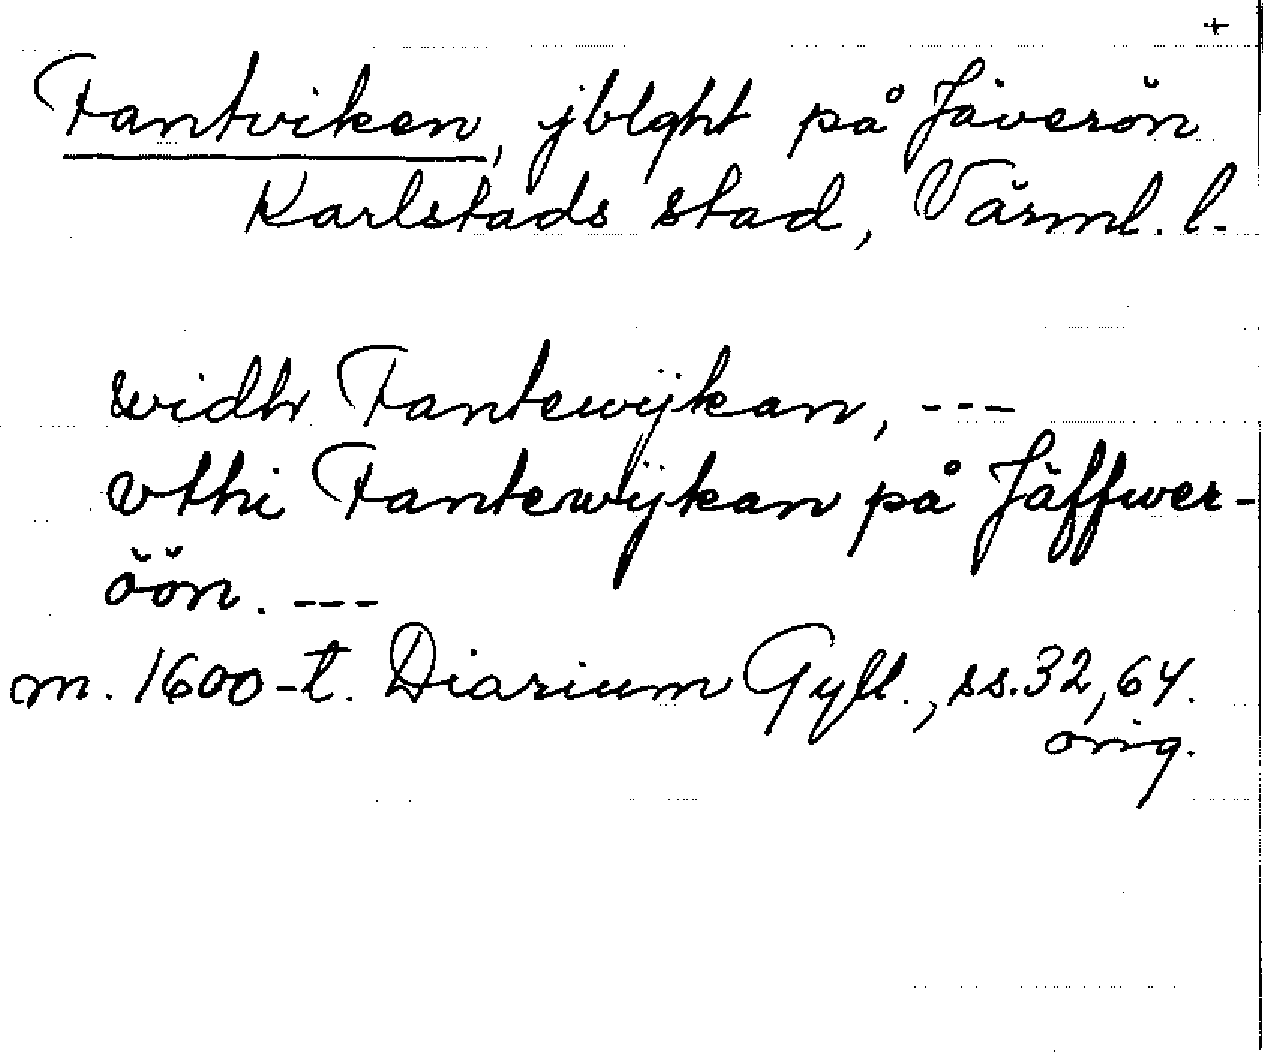 +
Fantviken, jblght på Jäverön
Karlstads stad, Värml. l.
widh Fantewijkan, ---
vthi Fantewijkan på Jäffwer-
öön. ---
m. 1600-t. Diarium Gyll., ss. 32, 64.
orig.